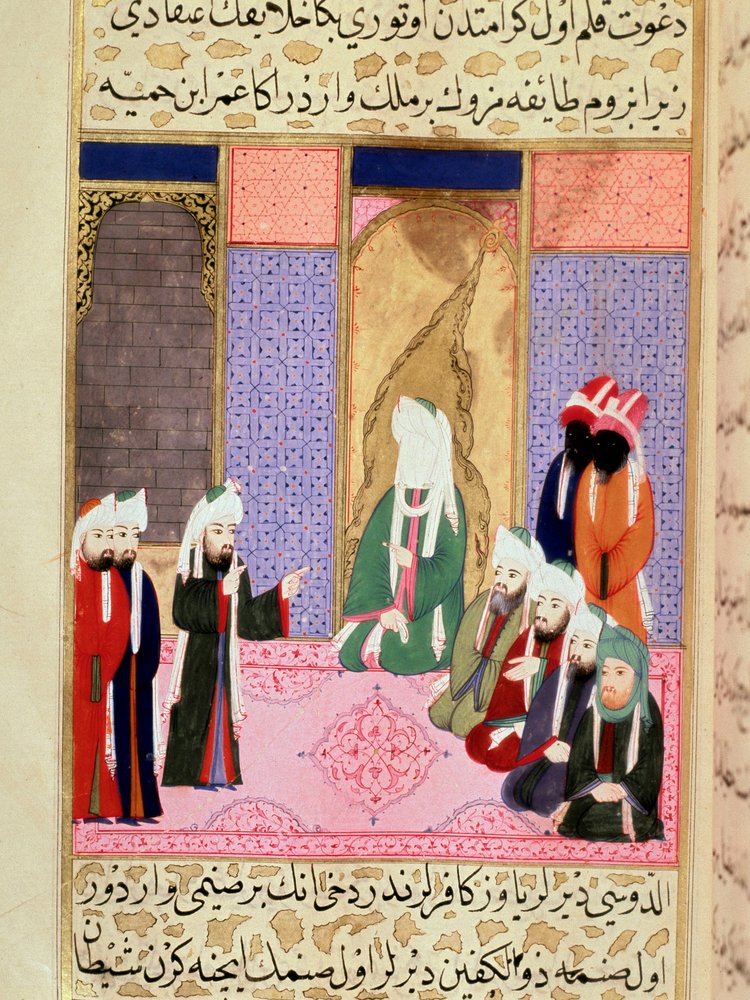 دعوت قلم اول كرامتدن اوتوري بكا خلايقك اعتقادي
زيرا بزوم طائفه مزوك بر ملك واردر اكا عمر ابن حميّه
الدّوسي ديرلر ياوز كافرلرندر دخي انك بر صنمي واردور
اول صنمه ذو الكفين ديرلر اول صنمك ايچنه كرن شيطان